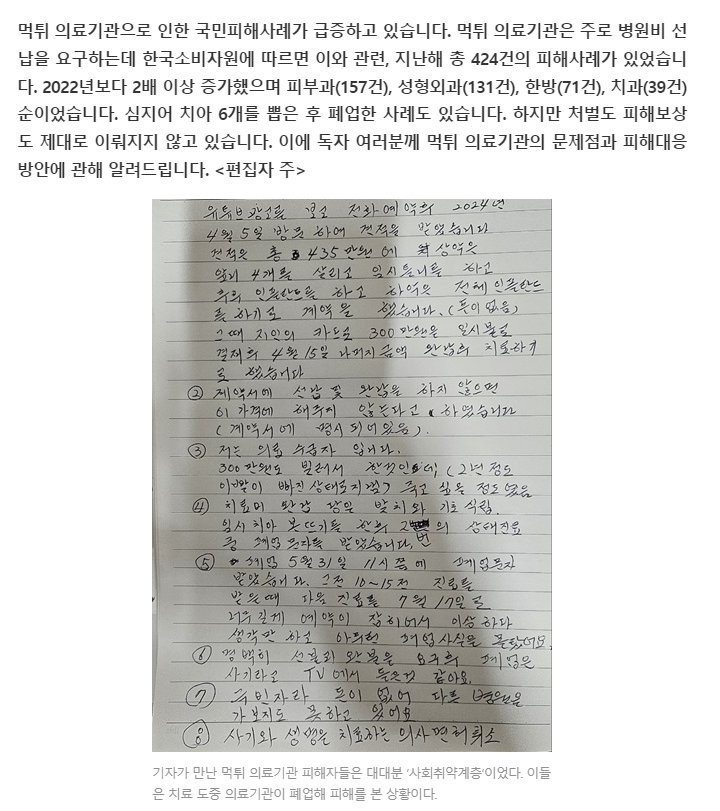 먹튀 의료기관으로 인한 국민피해사례가 급증하고 있습니다. 먹튀 의료기관은 주로 병원비 선
납을 요구하는데 한국소비자원에 따르면 이와 관련, 지난해 총 424건의 피해사례가 있었습니
다. 2022년보다 2배 이상 증가했으며 피부과(157건), 성형외과(131건), 한방(71건), 치과(39건)
순이었습니다. 심지어 치아 6개를 뽑은 후 폐업한 사례도 있습니다. 하지만 처벌도 피해보상
도 제대로 이뤄지지 않고 있습니다. 이에 독자 여러분께 먹튀 의료기관의 문제점과 피해대응
방안에 관해 알려드립니다. <편집자 주>
유튜브광고를 보고 전화예약후 2024년
4월 5일 방문하여 견적을 받았습니다
견적은 총 435만원에 상악은
앞니 4개를 살리고 임시틀니를 하고
임플란트를 하고 하악은 전체 임플란트
를 하기로 계약을 했습니다. (돈이 없음)
그때 지인의 카드로 300만원을 일시불로
결제후 4월 15일 나머지 금액 완납후 치료하기
로 했습니다
② 계약서에 선납 및 완납을 하지 않으면
이 가격에 해주지 않는다고 하였습니다
(계약서에 명시되어있음).
③ 저는 의료 수급자 입니다.
300만원도 빌려서 한것인데, (2년 정도
이빨이 빠진 상태로지냄) 죽고 싶을 정도였음
④ 치료비 완납 당일 발치와 기초식립.
임시치아 본뜨기를 한후 2번의 상태진료
중 폐업문자를 받았습니다.
⑤ 폐업 5월 31일 11시쯤에 폐업문자
받았습니다. 그전 10~15전 진료를
받을때 다음 진료를 7월 17일로
너무길게 예약이 잡혀서 이상하다
생각만 하고 폐업사실을 몰랐어요.
⑥ 명백히 선불리 완불을 요구후 폐업은
사기라고 TV에서 들은것 같아요.
⑦ 돈이 없어 다른 병원을
가보지도 못하고 있어요
⑧ 사기와 생명을 치료하는 의사면허취소
기자가 만난 먹튀 의료기관 피해자들은 대대분 '사회취약계층'이었다. 이들
은 치료 도중 의료기관이 폐업해 피해를 본 상황이다.